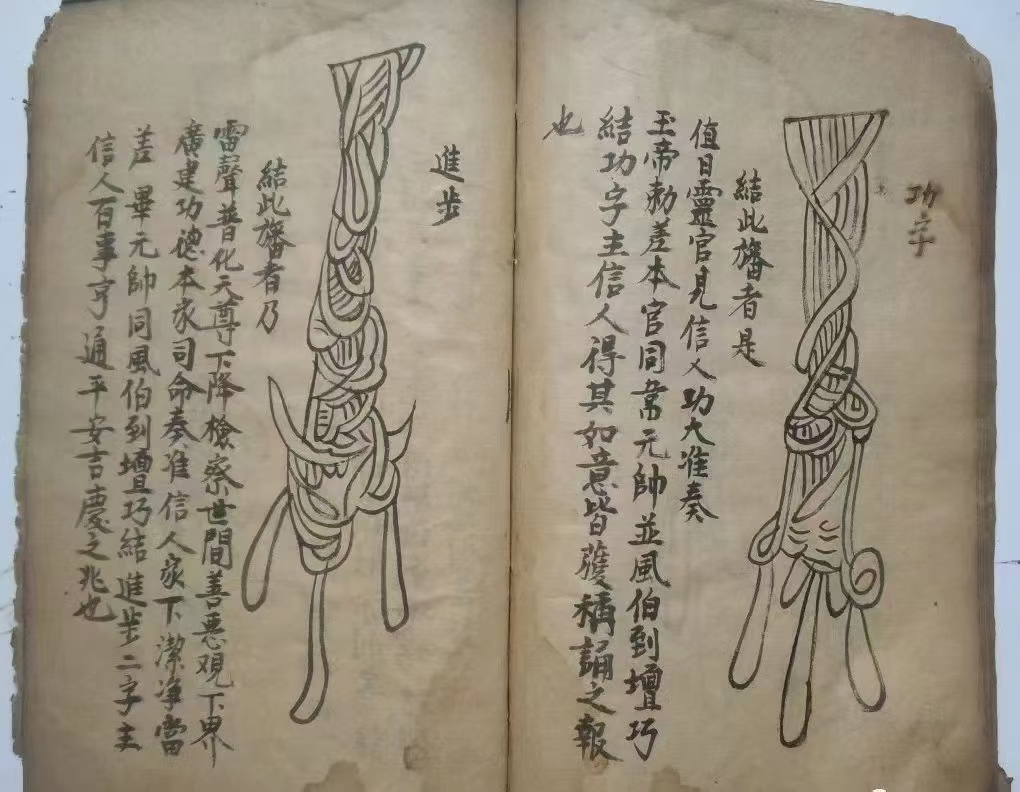 功字
結此旛者是
值日靈官見信人功大准奏
玉帝勅差本官同常元帥並風伯到壇巧
結功字主信人得其如意皆獲稱誦之報
也
進步
結此旛者乃
雷聲普化天尊下降檢察世間善惡观下界
廣建功德本家司命奏准信人家下潔净當
差畢元帥同風伯到壇巧結進步二字主
信人百事亨通平安吉慶之兆也